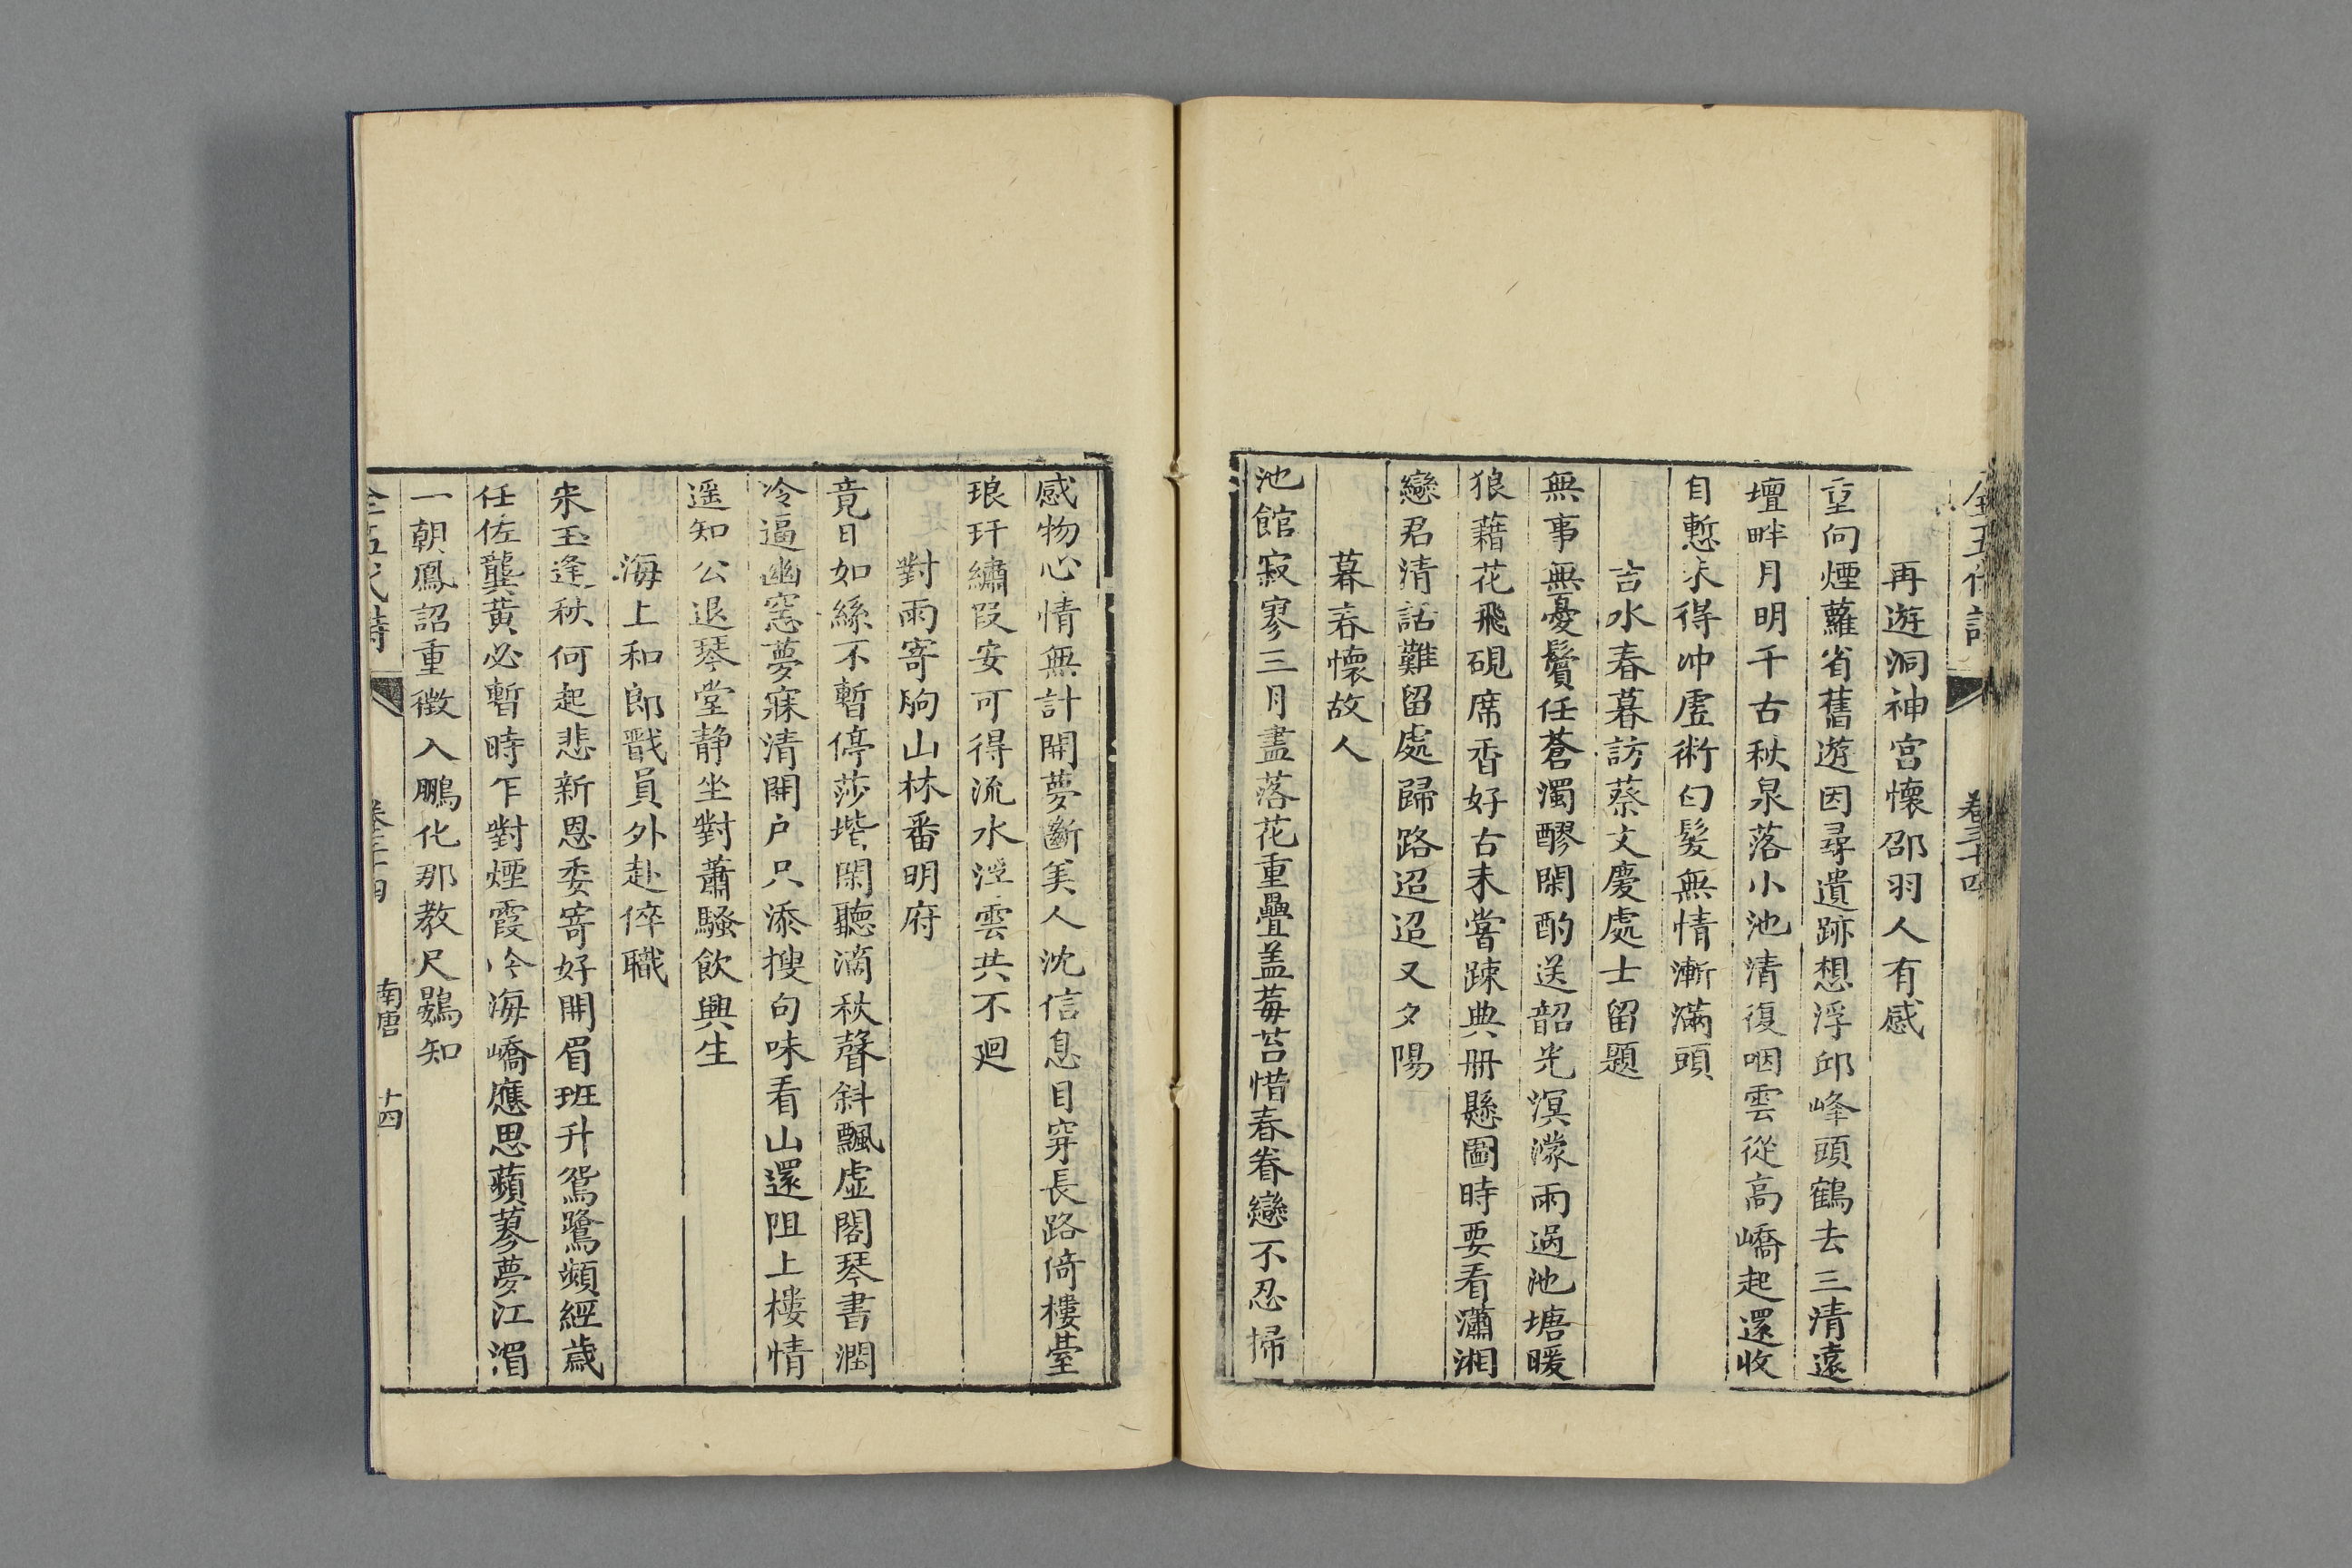 全五代詩 卷三十四
再遊洞神宮懷邵羽人有感
重向煙蘿省舊遊因尋遺跡想浮邱峰頭鶴去三清遠
壇畔月明千古秋泉落小池清復咽雲從高嶠起還收
自慙未得冲虛術白髮無情漸滿頭
吉水春暮訪蔡文慶處士留題
無事無憂鬢任蒼濁醪閑酌送韶光溟濛雨過池塘暖
狼藉花飛硯席香好古未嘗踈典冊懸圖時要看瀟湘
戀君清話難留處歸路迢迢又夕陽
暮春懷故人
池館寂寥三月盡落花重疊盖莓苔惜春眷戀不忍掃
感物心情無計開夢斷美人沈信息目穿長路倚樓臺
琅玕繡段安可得流水浮雲共不迴
對雨寄朐山林番明府
竟日如絲不暫停莎堦閑聽滴秋聲斜飄虛閣琴書潤
冷逼幽窓夢寐清開户只添搜句味看山還阻上樓情
遥知公退琴堂静坐對蕭騷飲興生
海上和郎戬員外赴倅職
宋玉逢秋何起悲新恩委寄好開眉班升鴛鷺頻經歲
任佐龔黄必暫時乍對煙霞吟海嶠應思蘋蓼夢江湄
一朝鳳詔重徵入鵬化那教尺鷃知
全五代詩 卷三十四 南唐 十四